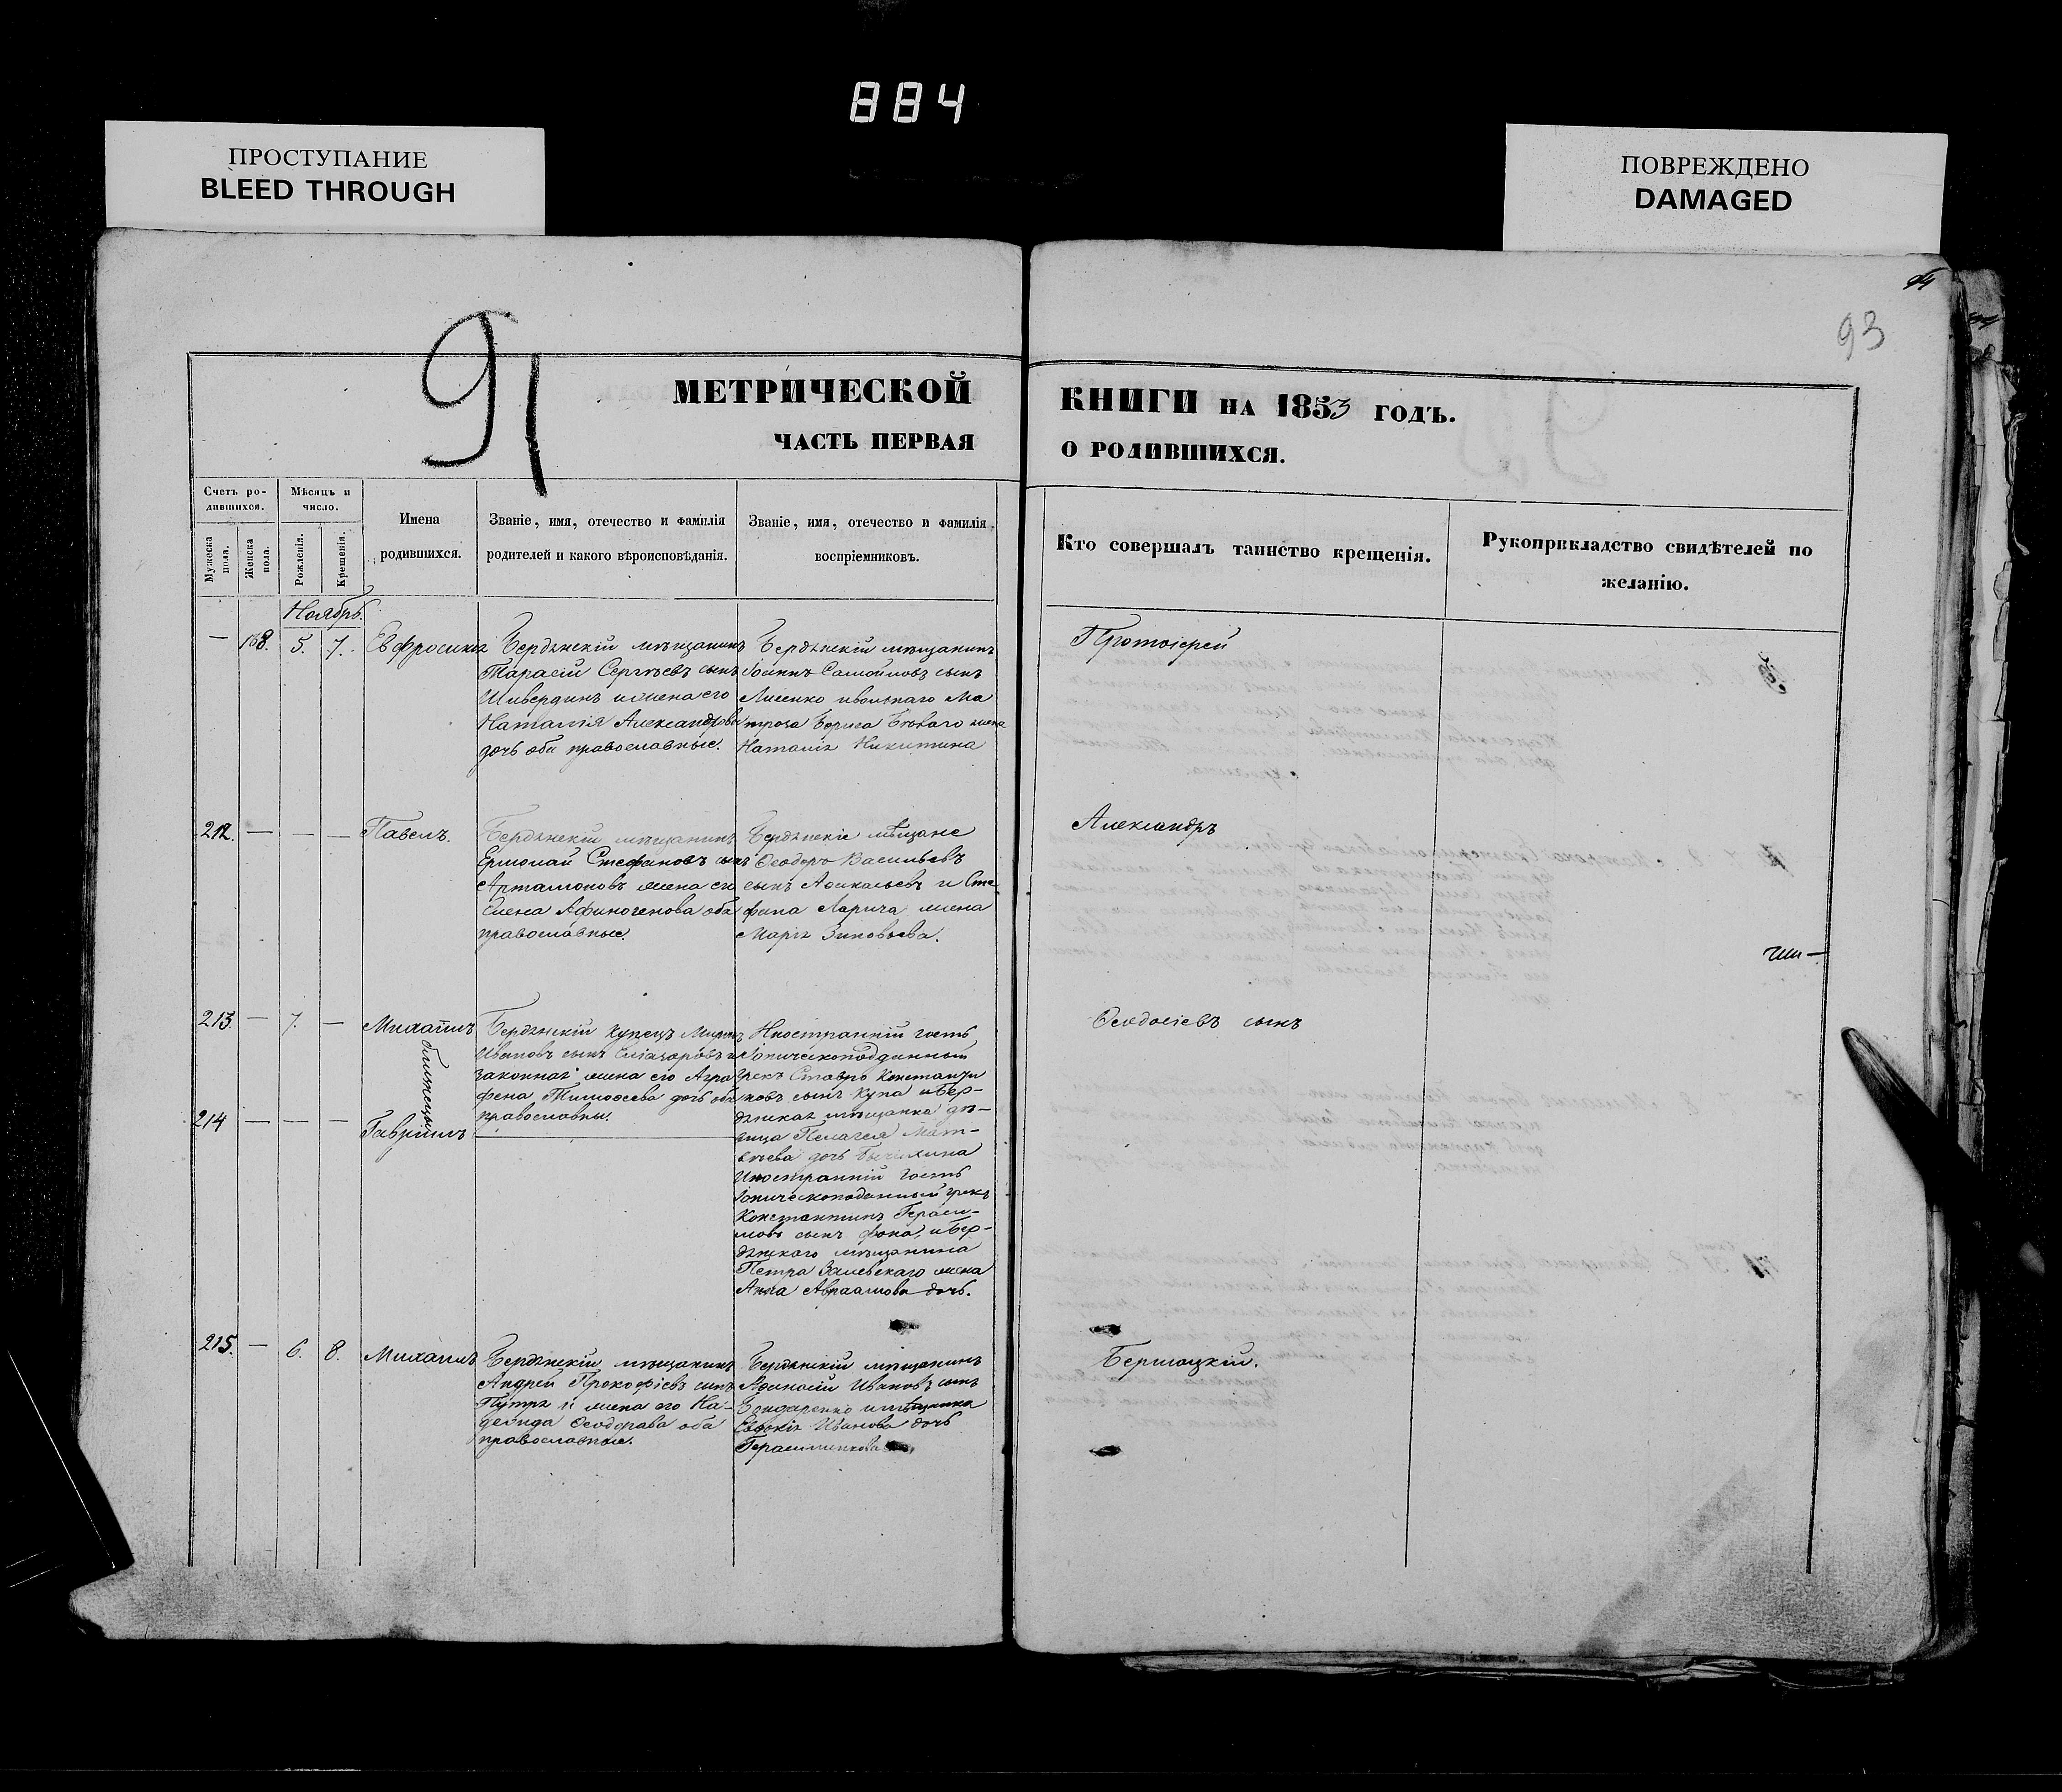 884
ПРОСТУПАНИЕ
BLEED THROUGH
ПОВРЕЖДЕНО
DAMAGED
94
93
91
МЕТРИЧЕСКОЙ
ЧАСТЬ ПЕРВАЯ
КНИГИ НА 1853 ГОДЪ.
О РОДИВШИХСЯ.
Счетъ ро-
дившихся.
Мужеска пола.
Женска пола.
Мѣсяцъ и
число.
Рожденія.
Крещенія.
Имена
родившихся.
Званіе, имя, отечество и фамилія
родителей и какого вѣроисповѣданія.
Званіе, имя, отечество и фамилія
воспріемниковъ.
Кто совершалъ таинство крещенія.
Рукоприкладство свидѣтелей по
желанію.
Ноябрь.
— 168. 5. 7. Евфросинія
Бердянскій мѣщанинъ
Тарасій Сергѣевъ сынъ
Шивердинъ и жена его
Наталія Александрова
дочь оба православные.
Бердянскій мѣщанинъ
Іоаннъ Самойловъ сынъ
Лисенко и вольнаго Ма
троза Бориса жена
Наталія Никитина
Протоіерей
212. — — — Павелъ.
Бердянскій мѣщанинъ
Ермолай Стефановъ сынъ
Артамоновъ жена его
Елена Афиногенова оба
православные.
Бердянскіе мѣщане
Ѳеодоръ Васильевъ
сынъ и Сте
фана Ларича жена
Марія Зиновьева.
Александръ
213. — 7. — Михаилъ
близнецы
Бердянскій купецъ
Ивановъ сынъ Еліазаровъ и
законная жена его Агра
фена Тимоѳеева дочь оба
православны.
Иностранній гость
Іоническоподданный
грекъ Ставро Констанди
новъ сынъ Купа и Бер-
дянская мѣщанка дѣ-
вица Пелагея Мат-
вѣева дочь
Ѳеодосіевъ сынъ
214 — — — Гавріилъ
Иностранній гость
Іоническоподанный грекъ
Константинъ Гераси-
мовъ сынъ Фока, и Бер-
дянскаго мѣщанина
Петра Залевскаго жена
Анна Авраамова дочь.
215. — 6. 8. Михаилъ
Бердянскій мѣщанинъ
Андрей Прокофіевъ сынъ
и жена его На-
дежда Ѳеодорава оба
православные.
Бердянскій мѣщанинъ
Афанасій Ивановъ сынъ
Бондаренко и мѣщанка
Евдокія Иванова дочь
Герасименкова